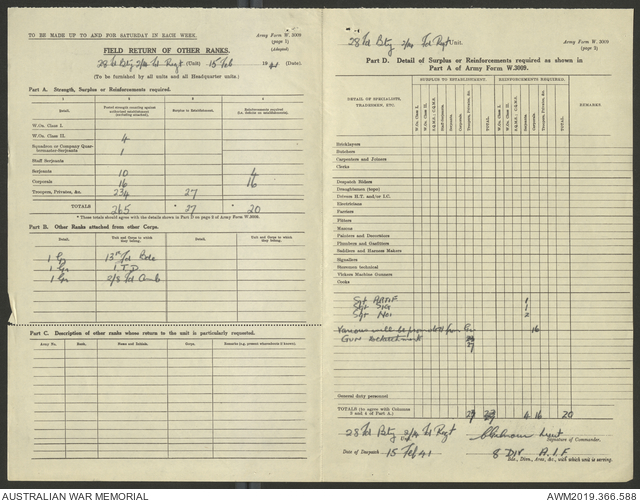 TO BE MADE UP TO AND FOR SATURDAY IN EACH WEEK.
Army Form W. 3009
(page 1)
(Adapted)
FIELD RETURN OF OTHER RANKS.
28 Fd Bty 2/14 Fd Regt (Unit) 15 Feb 1941 (Date)
(To be furnished by all units and all Headquarter units.)
Part A. Strength, Surplus or Reinforcements required.
1 2 3 4
Detail. Posted strength counting against authorized establishment (including attached). Surplus to Establishment. Reinforcements required (i.e. deficits on establishment).
W.Os. Class I.
W.Os. Class II. 4
Squadron or Company Quarter-master-Serjeants 1
Staff Serjeants
Serjeants 10 4
Corporals 16 16
Troopers, Privates, &c. 234 27
TOTALS 265 * 27 * 20
* These totals should agree with the details shown in Part D on page 3 of Army Form W.3009.
Part B. Other Ranks attached from other Corps.
Detail. Unit and Corps to which they belong. Detail. Unit and Corps to which they belong.
1 13th Fd
1 Gnr
1 Gnr 2/3 Fd Amb
Part C. Description of other ranks whose return to the unit is particularly requested.
Army No. Rank. Name and Initials. Corps. Remarks (e.g. present whereabouts if known).
28 Fd Bty 2/14 Fd Regt Unit.
Army Form W. 3009
(page 3)
Part D. Detail of Surplus or Reinforcements required as shown in
Part A of Army Form W.3009.
DETAIL OF SPECIALISTS, TRADESMEN, ETC.
SURPLUS TO ESTABLISHMENT.
REINFORCEMENTS REQUIRED.
REMARKS.
W.Os. Class I.
W.Os. Class II.
S.Q.M.S.; C.Q.M.S.
Staff-Serjeants.
Serjeants.
Corporals.
Troopers, Privates, &c.
TOTAL.
Bricklayers
Butchers
Carpenters and Joiners
Clerks
Despatch Riders
Draughtsmen (topo)
Drivers M.T. and/or I.C.
Electricians
Farriers
Fitters
Masons
Painters and Decorators
Plumbers and Gasfitters
Saddlers and Harness Makers
Signallers
Storemen technical
Vickers Machine Gunners
Cooks
Sgt 1
Sgt Sig 1
Sgt No1 2
Various will be promoted from 16
Gun
27
General duty personnel
TOTALS (to agree with Columns 3 and 4 of Part A.) 27 4 16 20
28 Fd Bty 2/14 Fd Regt
Lieut
Signature of Commander.
Date of Despatch 15 Feb 41
8 DIV A.I.F
Bde., Divn., Area, &c., with which unit is serving.
AUSTRALIAN WAR MEMORIAL
AWM2019.366.588